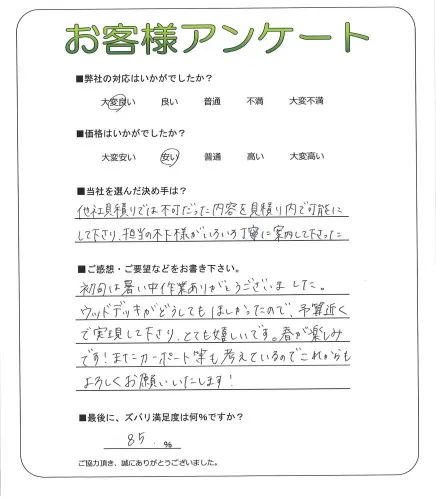 お客様アンケート
■弊社の対応はいかがでしたか？
大変良い 良い 普通 不満 大変不満
■価格はいかがでしたか？
大変安い 安い 普通 高い 大変高い
■当社を選んだ決め手は？
他社見積りでは不可だった内容を見積り内で可能に
して下さり、担当の木下様がいろいろ丁寧に案内して下さった
■ご感想・ご要望などをお書き下さい。
初旬は暑い中作業ありがとうございました。
ウッドデッキがどうしてもほしかったので、予算近く
で実現して下さり、とても嬉しいです。春が楽しみ
です！またカーポート等も考えているのでこれからも
よろしくお願いいたします！
■最後に、ズバリ満足度は何％ですか？
85.％
ご協力頂き、誠にありがとうございました。